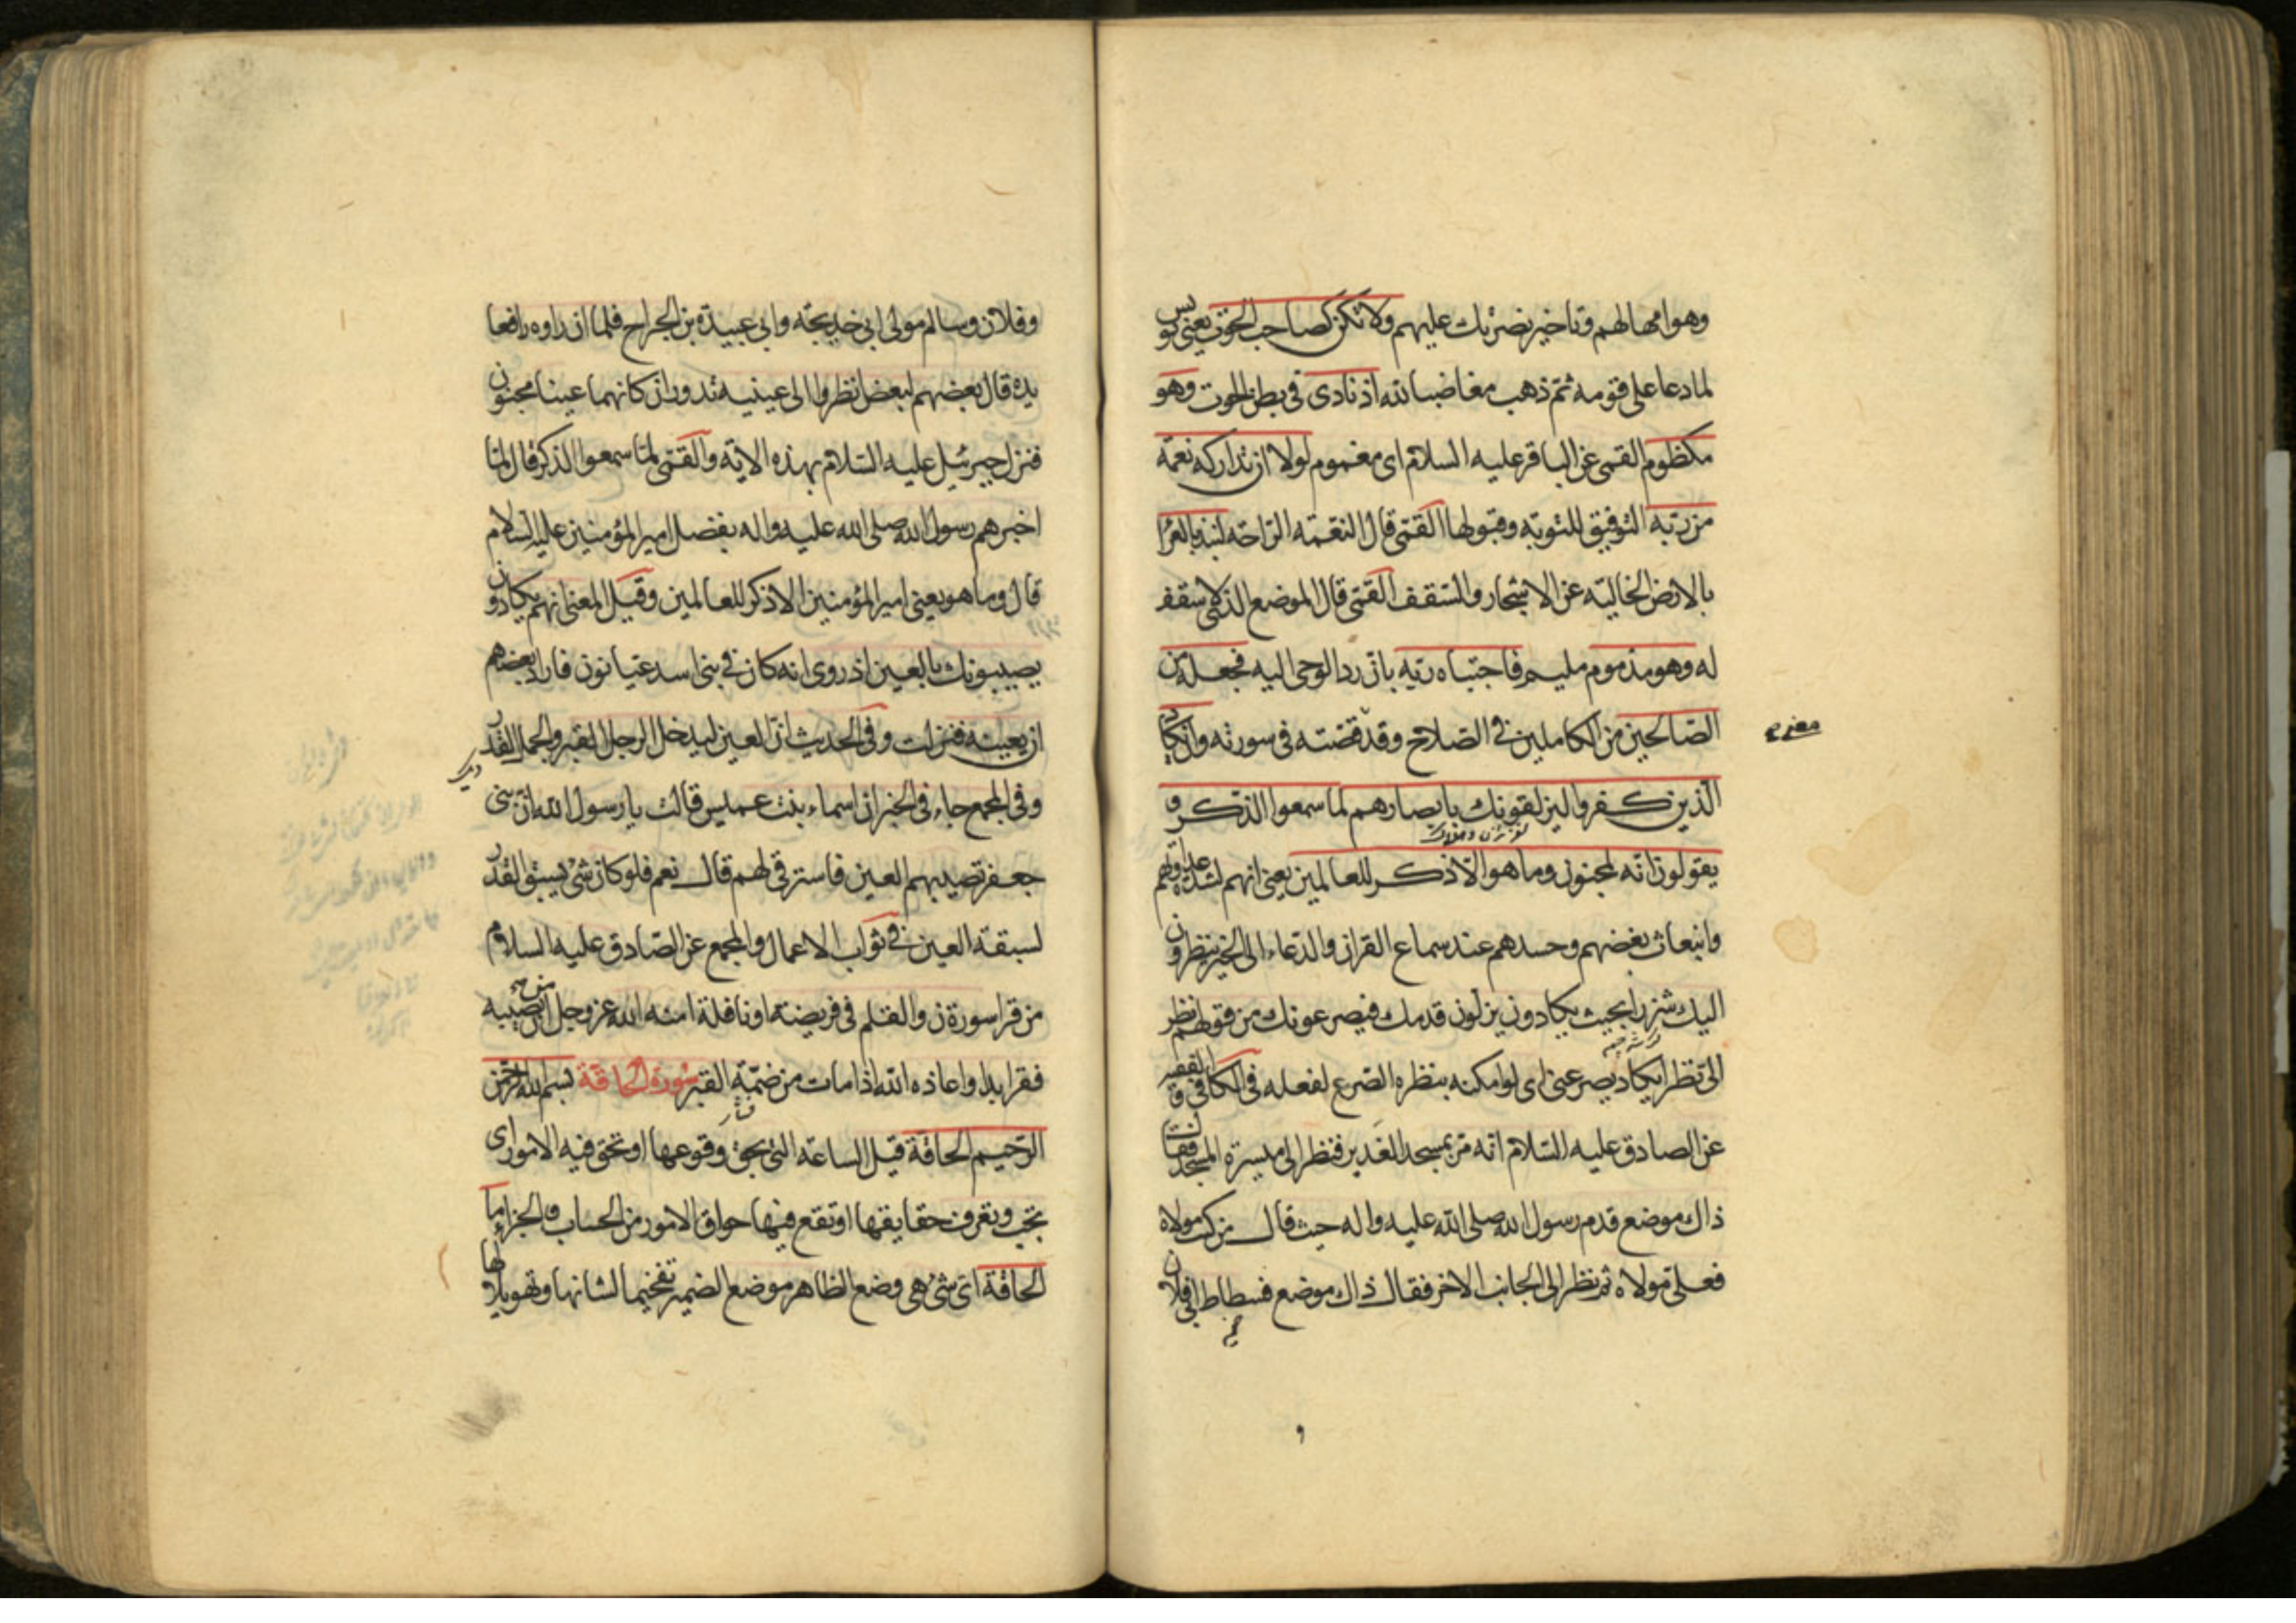 وهو امهالهم وتاخير نصرتك عليهم ولا تكن كصاحب الحوت يعني يونس
لما دعا على قومه ثم ذهب مغاضبا لله اذ نادى في بطن الحوت وهو
مكظوم القمي عن الباقر عليه السلام اى مغموم لولا ان تداركه نعمة
من ربه التوفيق للتوبة وقبولها القمي قال النعمة الرحمة لنبذ بالعراء
بالارض الخالية عن الاشجار والسقف القمي قال الموضع الذي لا سقف
له وهو مذموم مليم فاجتباه ربه بان رد الوحى اليه فجعله من
الصالحين من الكاملين في الصلاح وقد قضته في سورته وان يكاد
الذين كفروا ليزلقونك بابصارهم لما سمعوا الذكر و
يقولون انه لمجنون وما هو الا ذكر للعالمين يعنى انهم لشدة عداوتهم
وانبعاث بغضهم وحسدهم عند سماع القران والدعاء الى الخير ينظرون
اليك شزرا بحيث يكادون يزلون قدمك فيصرعونك من قولهم نظر
الى نظرا يكاد يصرعنى اى لو امكنه بنظره الصرع لفعله في الكافي و الفقيه
عن الصادق عليه السلام انه مر بمسجد الغدير فنظر الى ميسرة المسجد فقال
ذاك موضع قدم رسول الله صلى الله عليه واله حيث قال من كنت مولاه
فعلى مولاه ثم نظر الى الجانب الاخر فقال ذاك موضع فسطاط ابى فلان
وفلان وسالم مولى ابى خديجة وابى عبيدة بن الجراح فلما ان راوه رافعا
يده قال بعضهم لبعض انظروا الى عينيه تدوران كانهما عينا مجنون
فنزل جبرئيل عليه السلام بهذه الاية والقمي لما سمعوا الذكر قال لما
اخبرهم رسول الله صلى الله عليه واله بفضل امير المؤمنين عليه السلام
قال وما هو يعنى امير المؤمنين الا ذكر للعالمين وقيل المعنى انهم يكادون
يصيبونك بالعين اذ روى انه كان في بنى اسد عيانون فاراد بعضهم
ان يعينه فنزلت وفى الحديث ان العين ليدخل الرجل القبر والجمل القدر
وفى المجمع جاء في الخبر ان اسماء بنت عميس قالت يا رسول الله ان بنى
جعفر تصيبهم العين فاسترقى لهم قال نعم فلو كان شئ يسبق القدر
لسبقه العين في ثواب الاعمال والمجمع عن الصادق عليه السلام
من قرا سورة ن والقلم في فريضة او نافلة امنه الله عز وجل من ان يصيبه
فقر ابدا واعاذه الله اذا مات من ضمة القبر سورة الحاقة بسم الله الرحمن
الرحيم الحاقة قيل الساعة التى يحق وقوعها او تحق فيه الامور اى
تجب وتعرف حقايقها او تقع فيها حواق الامور من الحساب والجزاء ما
الحاقة اى شئ هى وضع الظاهر موضع الضمير تفخيما لشانها وتهويلا لها